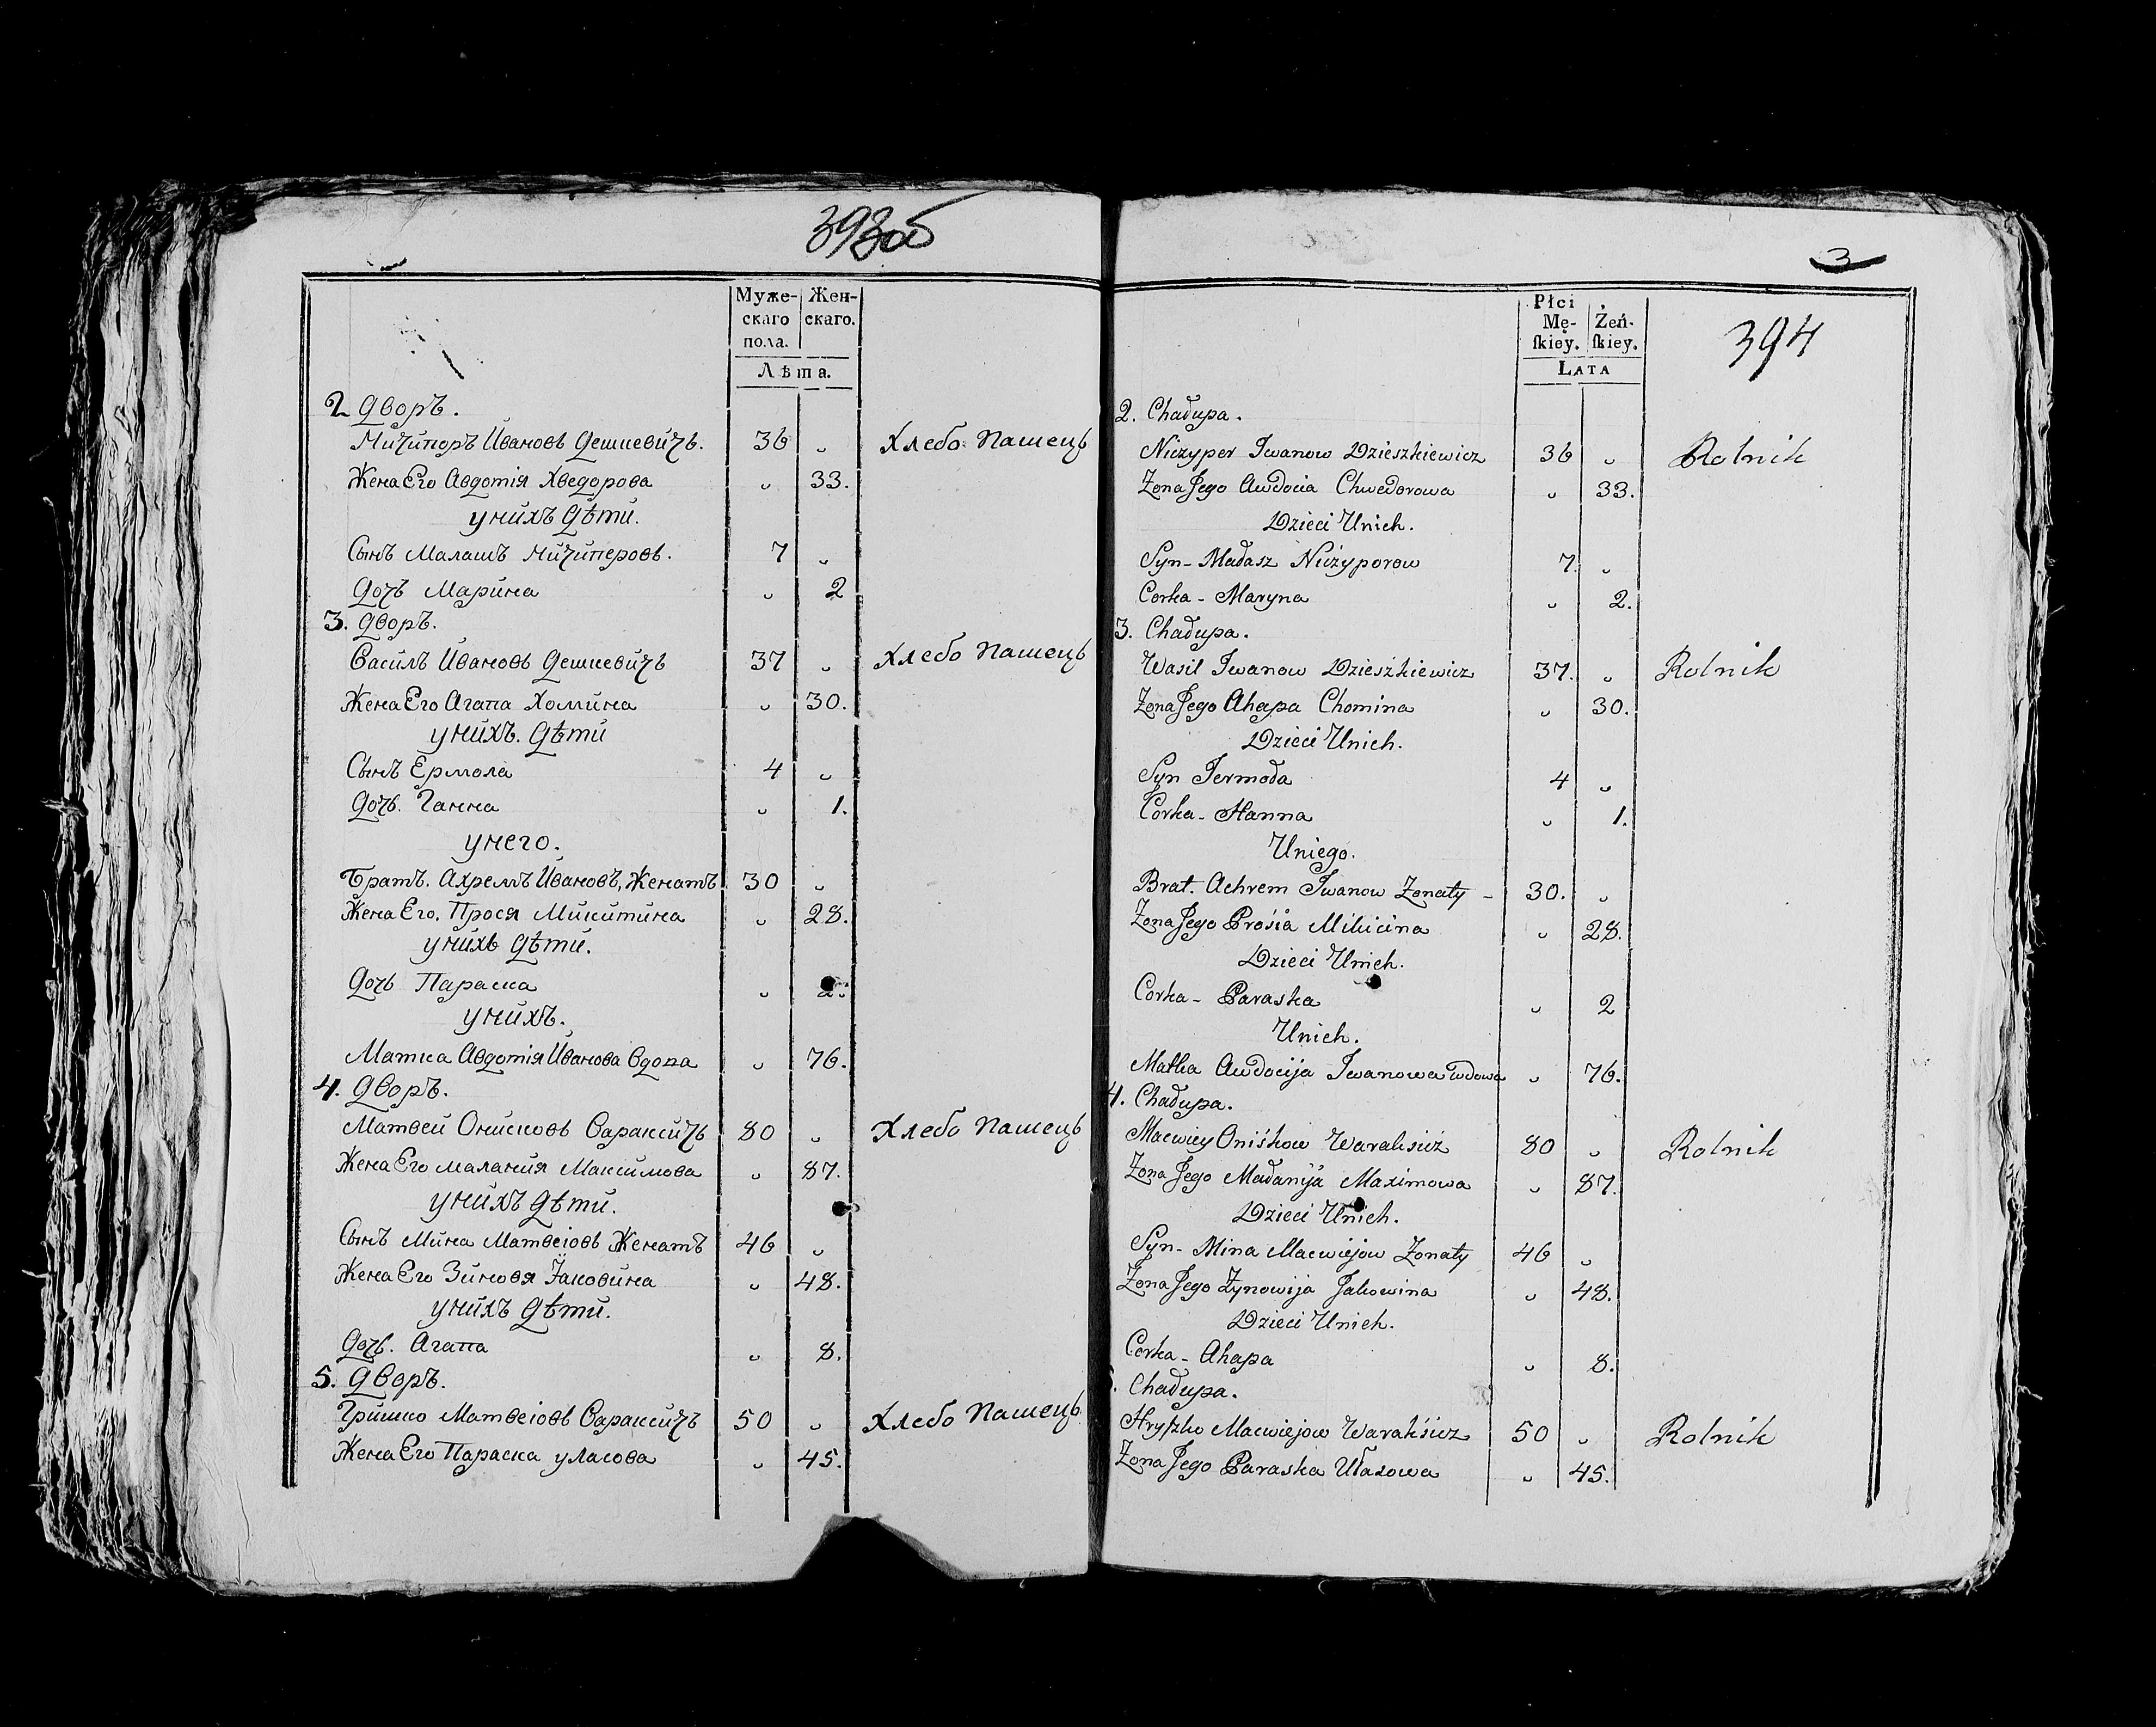 393об
Муже-
скаго
пола.
Жен-
скаго.
Лѣта.
2 Дворъ.
Ничипоръ Ивановъ Дешкевичь. 36 „ Хлебо-Пашець
Жена Его Авдотія Хведорова „ 33.
у нихъ Дѣти.
Сынъ Малашъ Ничипоровь. 7 „
Дочь Марина „ 2
3. Дворъ.
Василь Ивановъ Дешкевичь 37 „ Хлебо Пашець
Жена Его Агапа Хомина „ 30.
у нихъ. Дѣти
Сынъ Ермола 4 „
Дочь. Ганна „ 1.
у него.
Братъ. Ахремъ Ивановъ, Женатъ 30 „
Жена Его. Прося Микитина „ 28.
у нихь Дѣти.
Дочь Параска „ 2.
у нихъ.
Матка Авдотія Иванова Вдова „ 76.
4. Дворъ.
Матвей Онисковъ Вараксичь 80 „ Хлебо Пашець
Жена Его Малания Максимова „ 87.
у нихъ Дѣти.
Сынъ Мина Матвеіовь Женатъ 46 „
Жена Его Зиновя Яковина „ 48.
у нихъ Дѣти.
Дочь. Агапа „ 8.
5. Дворъ.
Гришко Матвеіовь Вараксичь 50 „ Хлебо Пашець
Жена Его Параска уласова „ 45.
3
394
Płci
Mę-
ſkiey.
Żeń-
ſkiey.
Lata
2. Chałupa.
Niczyper Iwanow Dzieszkiewicz 36 „ Rolnik
Żona Jego Awdocia Chwedorowa „ 33.
Dzieci Unich.
Syn - Małasz Niczyporow 7. „
Corka - Maryna „ 2.
3. Chałupa.
Wasil Iwanow Dzieszkiewicz 37. „ Rolnik
Żona Jego Ahapa Chomina „ 30.
Dzieci Unich.
Syn Jermoła 4 „
Corka - Hanna „ 1.
Uniego.
Brat. Achrem Iwanow Żonaty - 30. „
Żona Jego Prosia Mikicina „ 28.
Dzieci Unich.
Corka - Paraska „ 2
Unich.
Matka Awdocija Iwanowa wdowa „ 76.
4. Chałupa.
Maciey Oniśkow Waraksicz 80 „ Rolnik
Żona Jego Małanija Maximowa „ 87.
Dzieci Unich.
Syn - Mina Macwiejow Żonaty 46 „
Żona Jego Zynowija Jakowina „ 48.
Dzieci Unich.
Corka - Ahapa „ 8.
Chałupa.
Hryſzko Macwiejow Waraksicz 50 „ Rolnik
Żona Jego Paraska Ułasowa „ 45.